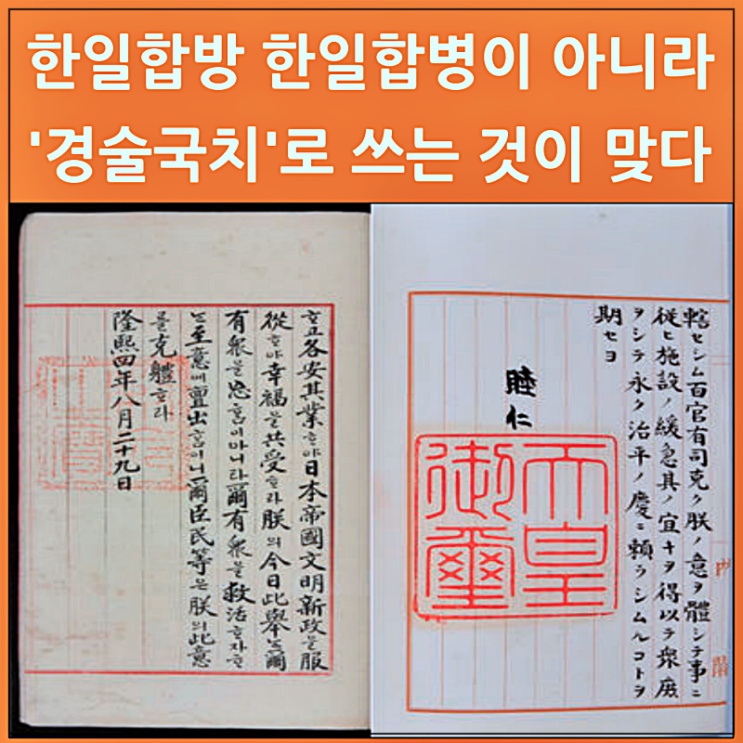 한일합방 한일합병이 아니라
'경술국치'로 쓰는 것이 맞다
ᄒᆞ고各安其業ᄒᆞ야日本帝國文明新政을服
從ᄒᆞ야幸福을共受ᄒᆞ라朕의今日此擧ᄂᆞᆫ爾
有衆을忘홈이아니라爾有衆을救活ᄒᆞ자ᄒᆞ
ᄂᆞᆫ至意에亶出홈이니爾臣民等은朕의此意
를克體ᄒᆞ라
隆熙四年八月二十九日
轄セシム百官有司克ク朕ノ意ヲ體シテ事ニ
從ヒ施設ノ緩急其ノ宜キヲ得以テ衆庶
ヲシテ永ク治平ノ慶ニ頼ラシムルコトヲ
期セヨ
睦仁
天皇
御璽